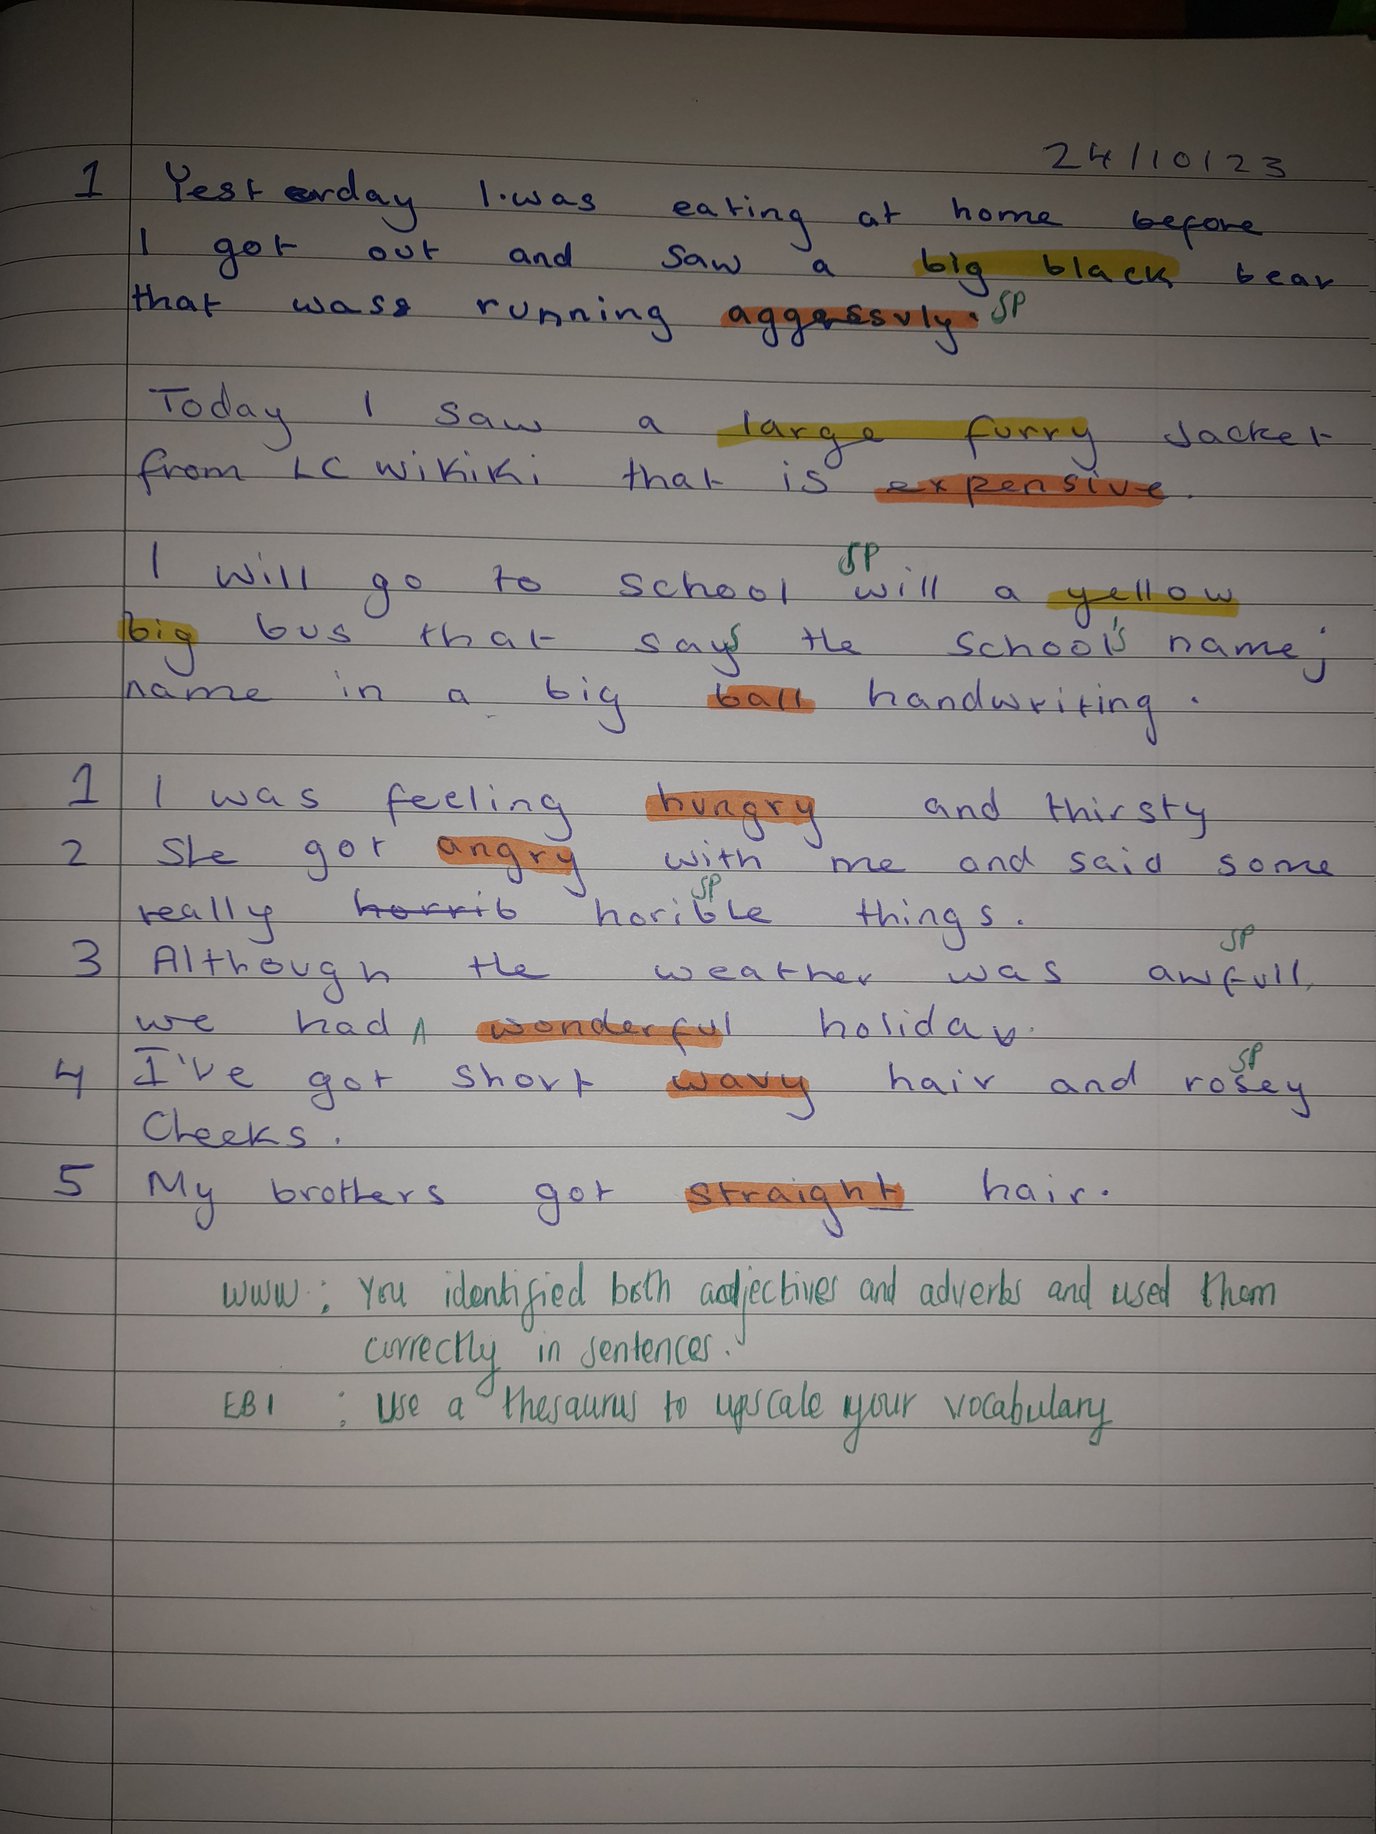 24/10/23
1 Yesterday I was eating at home before
I got out and saw a big black bear
that wass running aggerssvly. SP
Today I saw a large furry Jacket
from LC wikiki that is expensive.
SP
I will go to school will a yellow
big bus that says the school's name;
name in a big ball handwriting.
1 I was feeling hungry and thirsty
2 She got angry with me and said some
SP
really horrib horible things.
SP
3 Although the weather was awfull,
we had A wonderful holiday.
SP
4 I've got short wavy hair and rosey
Cheeks.
5 My brothers got straight hair.
WWW: You identified both adjectives and adverbs and used them
correctly in sentences.
EBI : Use a thesaurus to upscale your vocabulary